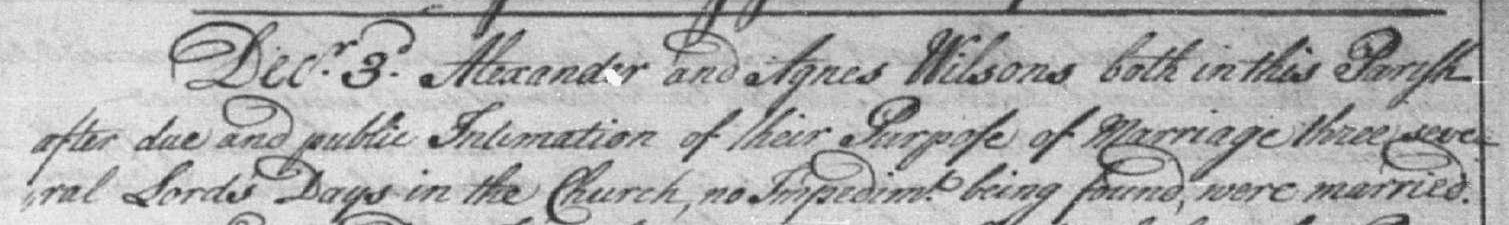 Decr. 3d. Alexander and Agnes Wilsons both in this Parish
after due and public Intimation of their Purpose of Marriage three seve-
ral Lord's Days in the Church, no Impedimt. being found, were married.